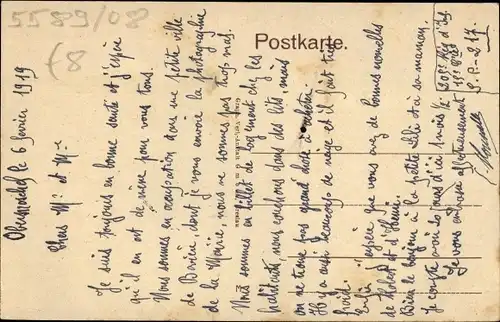 5589/08
€8
Postkarte.
Obermoschel le 6 février 1919
Chers Mr et Mme
Je suis toujours en bonne santé et j'espère
qu'il en est de même pour vous tous.
Nous sommes en occupation dans une petite ville
de Bavière, dont je vous envoie la photographie
de la Mairie, nous ne sommes pas trop mal.
Nous sommes en billet de logement chez les
habitants, nous couchons dans des lits, mais
on ne trouve pas grand chose à acheter.
Il y a aussi beaucoup de neige et il fait très
froid.
Enfin j'espère que vous avez de bonnes nouvelles
de et d'
Bien le bonjour à la petite Lili et à sa maman.
Je compte avoir 20 jours d'ici 1 mois 1/2
Je vous embrasse affectueusement
S.P. 217